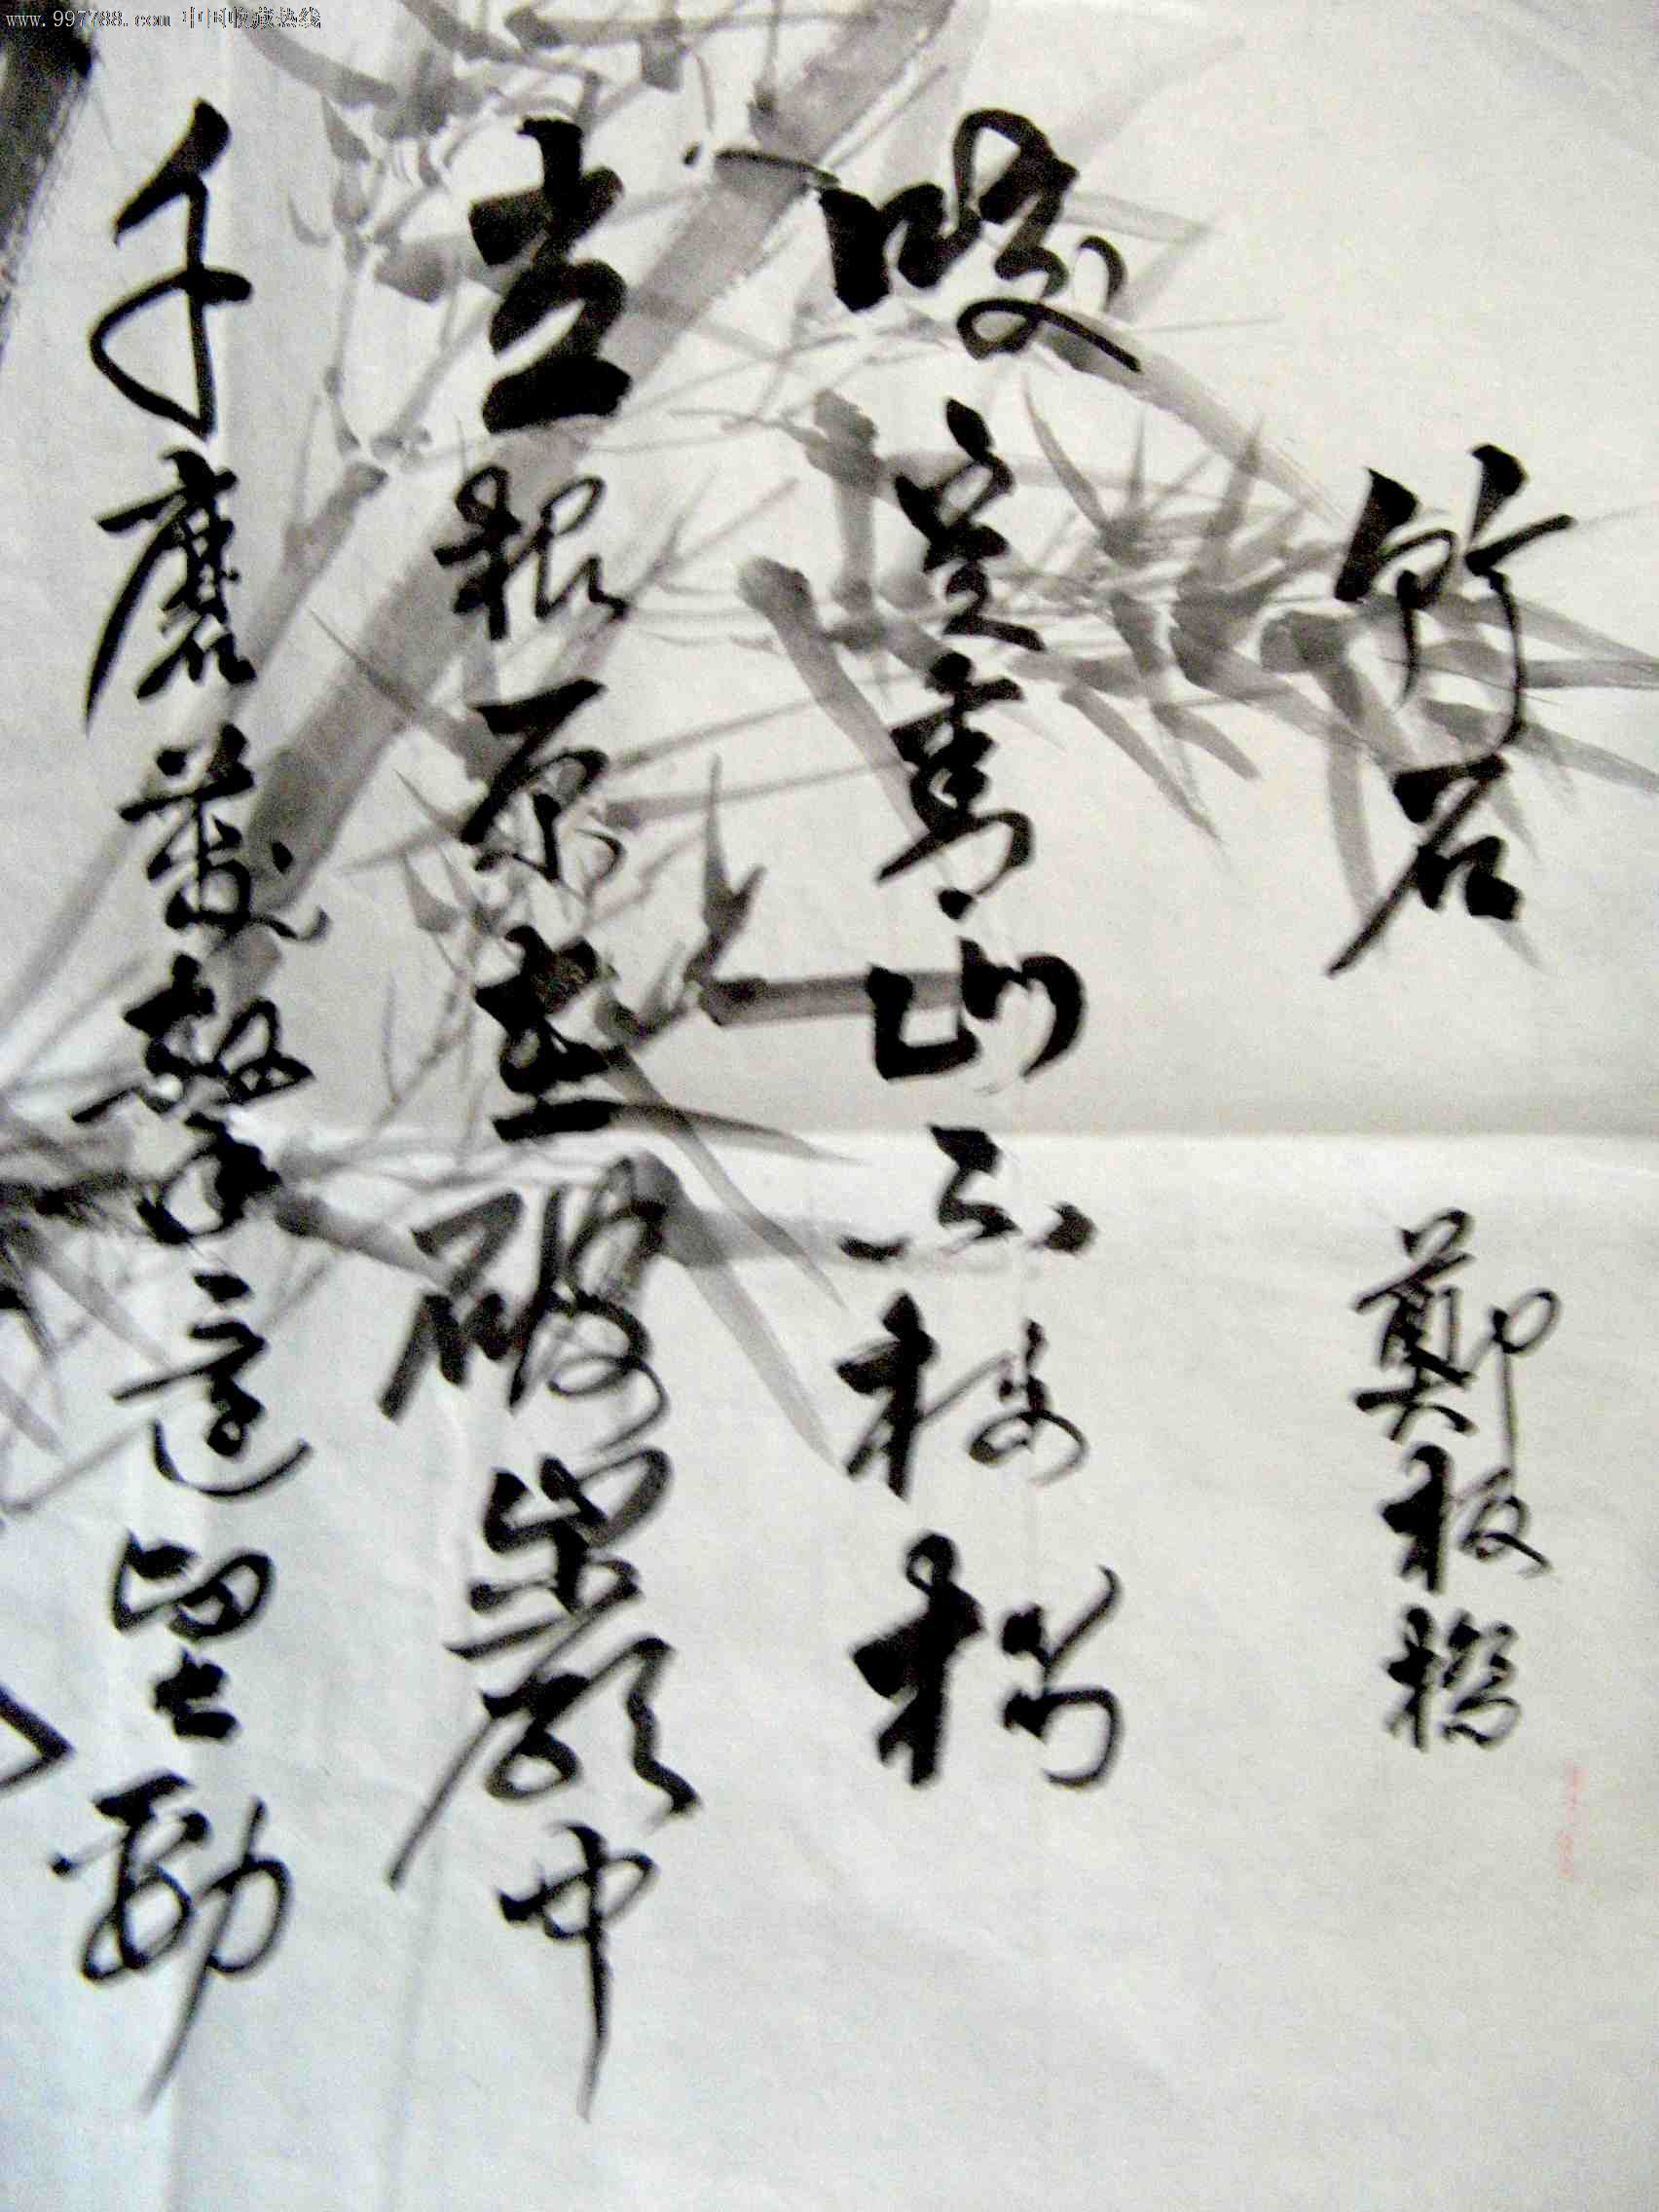 www.997788.com 中国收藏热线
竹石 鄭板橋
咬定青山不放松
立根原在破巖中
千磨萬擊還堅勁